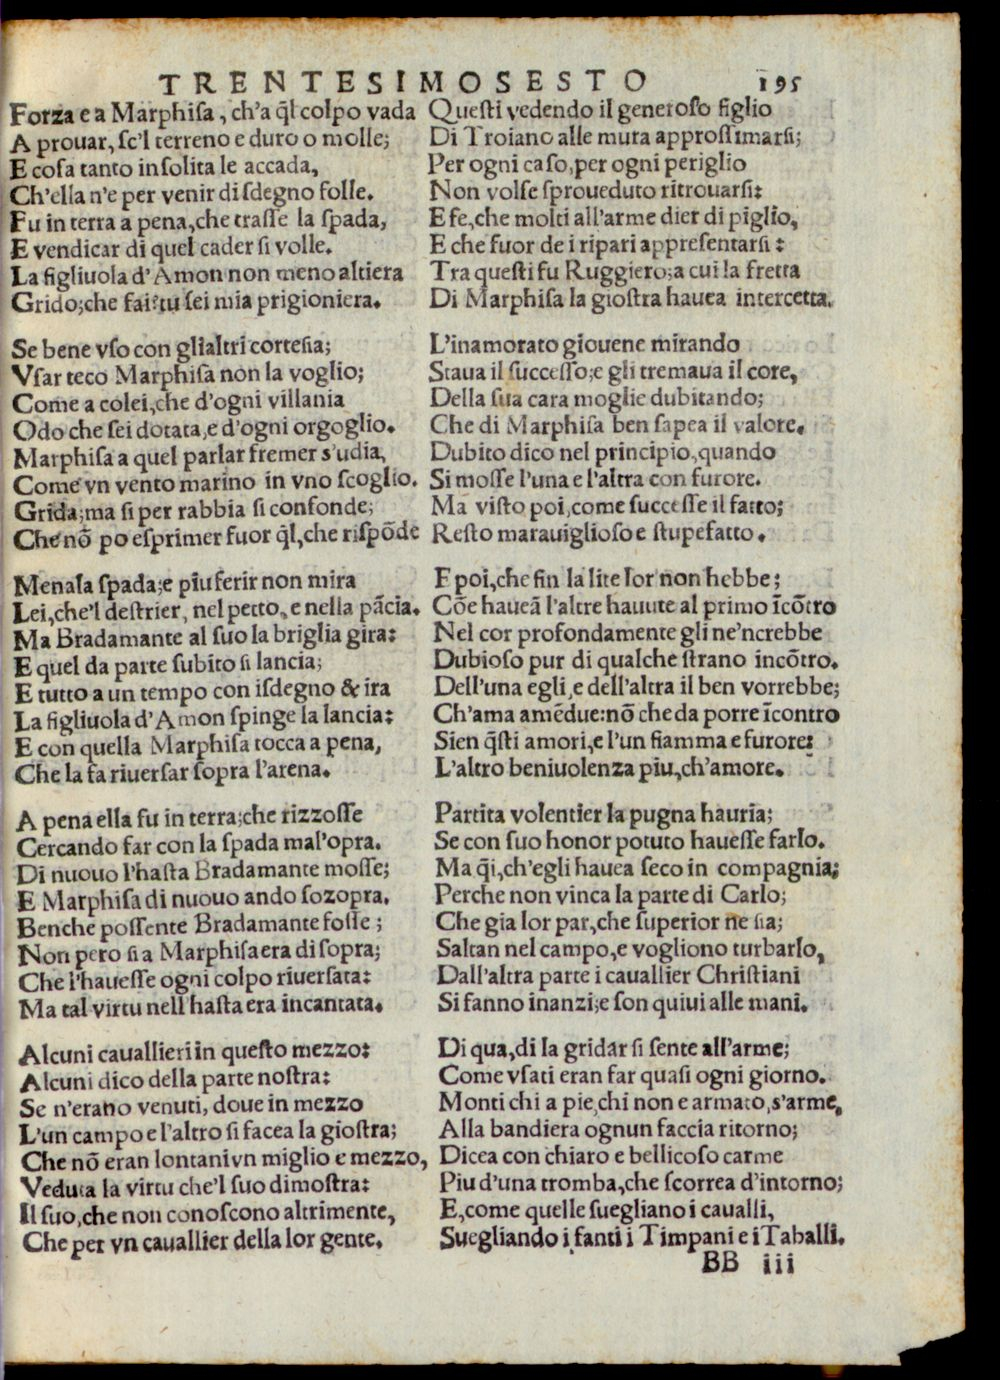 TRENTESIMOSESTO 195
Forza e a Marphisa, ch'a q̃l colpo vada
A prouar, se'l terreno e duro o molle;
E cosa tanto insolita le accada,
Ch'ella n'e per venir di sdegno folle.
Fu in terra a pena, che trasse la spada,
E vendicar di quel cader si volle.
La figliuola d'Amon non meno altiera
Grido; che fai? tu sei mia prigioniera.
Se bene vso con glialtri cortesia;
Vsar teco Marphisa non la voglio;
Come a colei, che d'ogni villania
Odo che sei dotata, e d'ogni orgoglio.
Marphisa a quel parlar fremer s'udia,
Come vn vento marino in vno scoglio.
Grida; ma si per rabbia si confonde;
Che nõ po esprimer fuor q̃l, che rispõde
Mena la spada; e piu ferir non mira
Lei, che'l destrier, nel petto, e nella pãcia.
Ma Bradamante al suo la briglia gira:
E quel da parte subito si lancia;
E tutto a un tempo con isdegno & ira
La figliuola d'Amon spinge la lancia:
E con quella Marphisa tocca a pena,
Che la fa riuersar sopra l'arena.
A pena ella fu in terra; che rizzosse
Cercando far con la spada mal'opra.
Di nuouo l'hasta Bradamante mosse;
E Marphisa di nuouo ando sozopra.
Benche possente Bradamante fosse;
Non pero si a Marphisa era di sopra;
Che l'hauesse ogni colpo riuersata:
Ma tal virtu nell'hasta era incantata.
Alcuni cauallieri in questo mezzo:
Alcuni dico della parte nostra:
Se n'erano venuti, doue in mezzo
L'un campo e l'altro si facea la giostra;
Che nõ eran lontani vn miglio e mezzo,
Veduta la virtu che'l suo dimostra:
Il suo, che non conoscono altrimente,
Che per vn cauallier della lor gente.
Questi vedendo il generoso figlio
Di Troiano alle mura approssimarsi;
Per ogni caso, per ogni periglio
Non volse sproueduto ritrouarsi:
E fe, che molti all'arme dier di piglio,
E che fuor de i ripari appresentarsi:
Tra questi fu Ruggiero; a cui la fretta
Di Marphisa la giostra hauea intercetta.
L'inamorato giouene mirando
Staua il successo; e gli tremaua il core,
Della sua cara moglie dubitando;
Che di Marphisa ben sapea il valore.
Dubito dico nel principio, quando
Si mosse l'una e l'altra con furore.
Ma visto poi, come successe il fatto;
Resto marauiglioso e stupefatto.
E poi, che fin la lite lor non hebbe;
Cõe haueã l'altre hauute al primo ĩcõtro
Nel cor profondamente gli ne'ncrebbe
Dubioso pur di qualche strano incõtro.
Dell'una egli, e dell'altra il ben vorrebbe;
Ch'ama amẽdue: nõ che da porre ĩcontro
Sien q̃sti amori, e l'un fiamma e furore:
L'altro beniuolenza piu, ch'amore.
Partita volentier la pugna hauria;
Se con suo honor potuto hauesse farlo.
Ma q̃i, ch'egli hauea seco in compagnia;
Perche non vinca la parte di Carlo;
Che gia lor par, che superior ne sia;
Saltan nel campo, e vogliono turbarlo,
Dall'altra parte i cauallier Christiani
Si fanno inanzi; e son quiui alle mani.
Di qua, di la gridar si sente all'arme;
Come vsati eran far quasi ogni giorno.
Monti chi a pie, chi non e armato, s'arme,
Alla bandiera ognun faccia ritorno;
Dicea con chiaro e bellicoso carme
Piu d'una tromba, che scorrea d'intorno;
E, come quelle suegliano i caualli,
Suegliando i fanti i Timpani e i Taballi.
BB iii